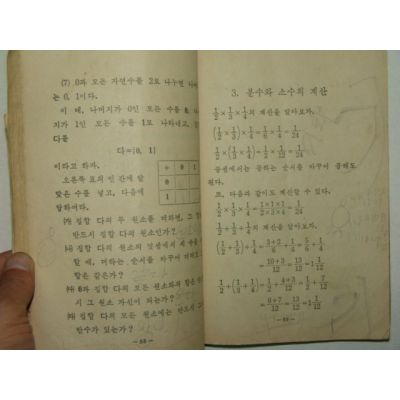 (7) 0과 모든 자연수를 2로 나누면 나머
는 0, 1이다.
이 때, 나머지가 0인 모든 수를
지가 1인 모든 수를 1로 나타내고,
다를
다=[0, 1]
이라고 하자.
오른쪽 표의 빈 칸에 알
맞은 수를 넣고, 다음에
답하여라.
+ 0
0
1
집합 다의 두 원소를 더하면, 그
반드시 집합 다의 원소인가?
집합 다의 원소의 덧셈에서 세 수를
할 때, 더하는 순서를 바꾸어 더해도
합은 같은가?
0과 집합 다의 모든 원소와의 합은
시 그 원소 자신이 되는가?
집합 다의 모든 원소에는 반드시 그
한수가 있는가?
- 68 -
3. 분수와 소수의 계산
1/2 × 1/3 × 1/4 의 계산을 알아보자.
(1/2 × 1/3) × 1/4 = 1/6 × 1/4 = 1/24
1/2 × (1/3 × 1/4) = 1/2 × 1/12 = 1/24
곱셈에서는 곱하는 순서를 바꾸어 곱해도
된다.
또, 다음과 같이도 계산할 수 있다.
1/2 × 1/3 × 1/4 = 1×1×1/2×3×4 = 1/24
1/2 + 1/3 + 1/4 의 계산을 알아보자.
(1/2 + 1/3) + 1/4 = 3+2/6 + 1/4 = 5/6 + 1/4
= 10+3/12 = 13/12 = 1 1/12
1/2 + (1/3 + 1/4) = 1/2 + 4+3/12 = 1/2 + 7/12
= 6+7/12 = 13/12 = 1 1/12
- 69 -